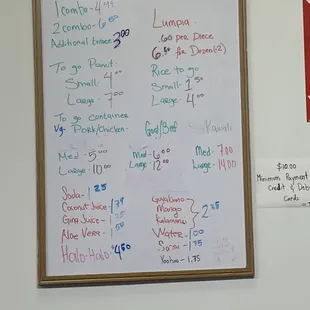 1 combo - 4.99
2 combo - 6.50
Additional Entree 3.00
To go Pancit
Small - 4.00
Large - 7.00
To go container
Vg. Pork/Chicken -
Med - 5.00
Large - 10.00
Lumpia -
.60 per Piece
6.50 for Dozen (12)
Rice to go
Small - 1.50
Large - 4.00
Goat/Beef
Kawali
Med - 6.00
Large - 12.00
Med - 7.00
Large - 14.00
Soda - 1.25
Coconut Juice -
Guava Juice -
Aloe Vera - 1.50
Halo-Halo - $4.50
Guyabano
Mango
Kalamansi
2.25
Water - 1.00
Sarsi - 1.75
Yoohoo - 1.75
$10.00
Minimum Payment
Credit & Debit
Cards